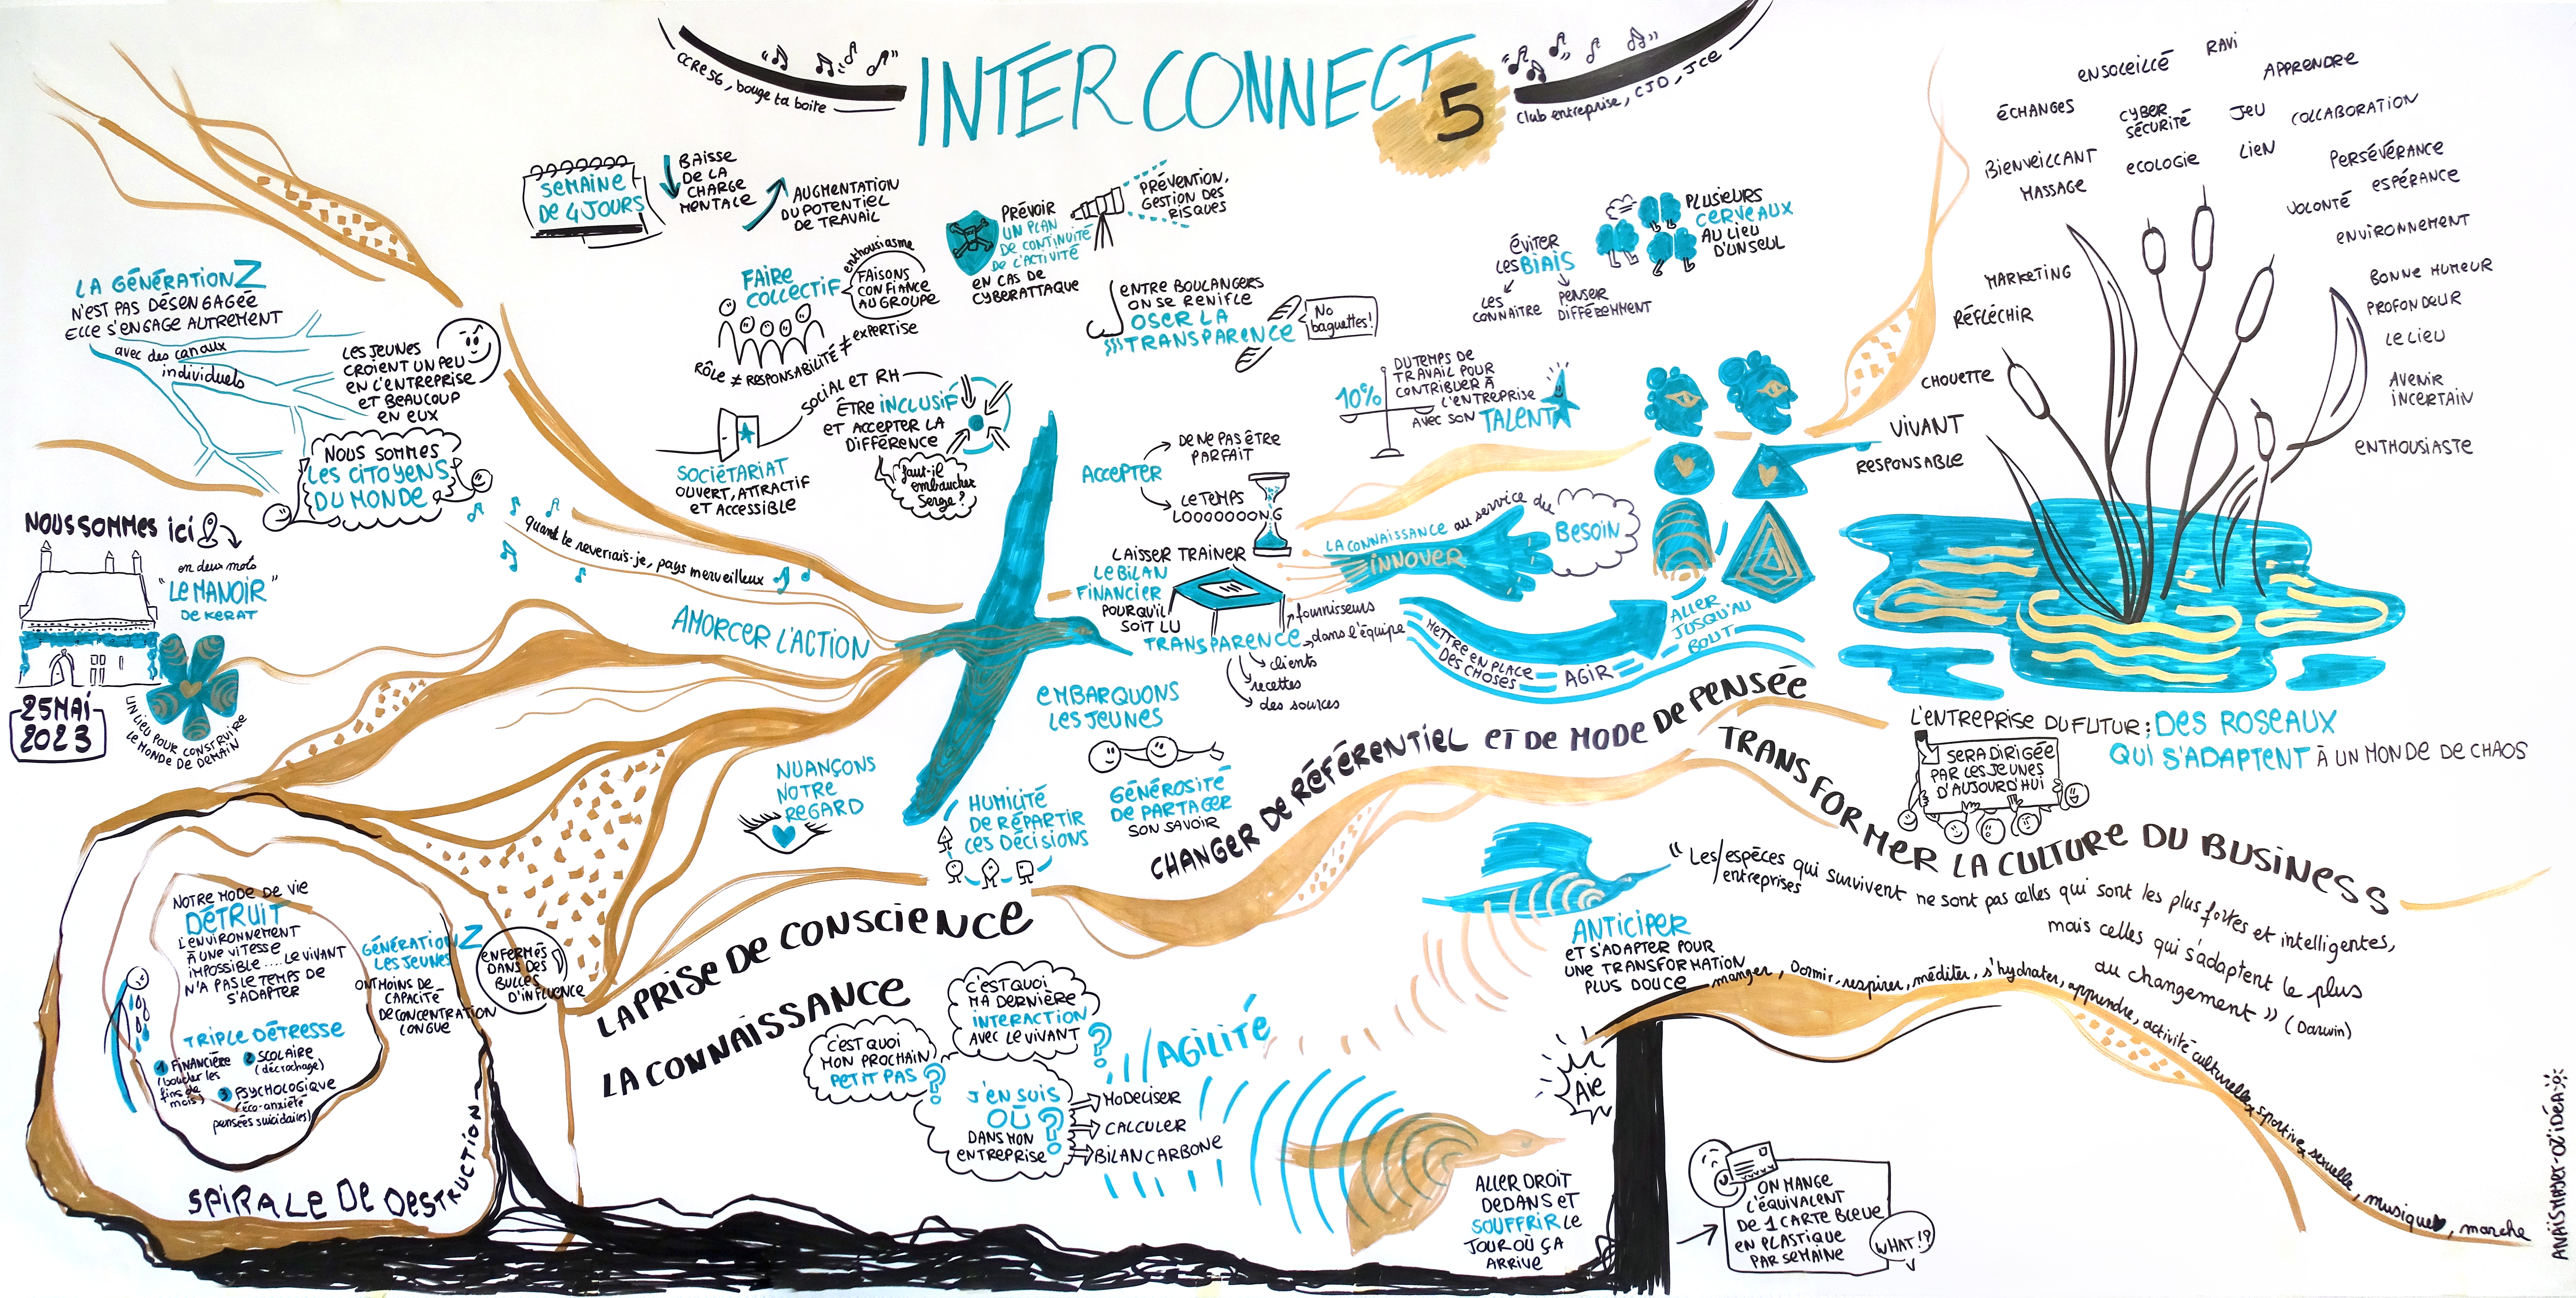 INTERCONNECT
5
CCRE56, bouge ta boite
club entreprise, CJD, JCE
SEMAINE
DE 4 JOURS
BAISSE
DE LA
CHARGE
MENTALE
AUGMENTATION
DU POTENTIEL
DE TRAVAIL
FAIRE
COLLECTIF
enthousiasme
FAISONS
CONFIANCE
AU GROUPE
RÔLE ≠ RESPONSABILITÉ ≠ EXPERTISE
PRÉVOIR
UN PLAN
DE CONTINUITÉ
DE L'ACTIVITÉ
EN CAS DE
CYBERATTAQUE
PRÉVENTION,
GESTION DES
RISQUES
ENTRE BOULANGERS
ON SE RENIFLE
OSER LA
TRANSPARENCE
No
baguettes!
ÉVITER
LES BIAIS
LES
CONNAÎTRE
PENSER
DIFFÉREMMENT
PLUSIEURS
CERVEAUX
AU LIEU
D'UN SEUL
10%
DU TEMPS DE
TRAVAIL POUR
CONTRIBUER À
L'ENTREPRISE
AVEC SON TALENT
SOCIÉTARIAT
OUVERT, ATTRACTIF
ET ACCESSIBLE
SOCIAL ET RH
ÊTRE INCLUSIF
ET ACCEPTER LA
DIFFÉRENCE
faut-il
embaucher
Serge?
LA GÉNÉRATION Z
N'EST PAS DÉSENGAGÉE
ELLE S'ENGAGE AUTREMENT
avec des canaux
individuels
LES JEUNES
CROIENT UN PEU
EN L'ENTREPRISE
ET BEAUCOUP
EN EUX
NOUS SOMMES
LES CITOYENS
DU MONDE
NOUS SOMMES ici
en deux mots
"LE MANOIR"
DE KERAT
25 MAI
2023
UN LIEU POUR CONSTRUIRE
LE MONDE DE DEMAIN
quand te reverrais-je, pays merveilleux
AMORCER L'ACTION
ACCEPTER
DE NE PAS ÊTRE
PARFAIT
LE TEMPS
LOOOOOONG
LAISSER TRAINER
LE BILAN
FINANCIER
POUR QU'IL
SOIT LU
TRANSPARENCE
fournisseurs
dans l'équipe
clients
recettes
des sources
LA CONNAISSANCE au service du
INNOVER
BESOIN
METTRE EN PLACE
DES CHOSES
AGIR
ALLER
JUSQU'AU
BOUT
EMBARQUONS
LES JEUNES
GÉNÉROSITÉ
DE PARTAGER
SON SAVOIR
NUANÇONS
NOTRE
REGARD
HUMILITÉ
DE RÉPARTIR
LES DÉCISIONS
RAVI
ENSOLEILLÉ
APPRENDRE
ÉCHANGES
CYBER
SÉCURITÉ
JEU
COLLABORATION
BIENVEILLANT
ECOLOGIE
LIEN
PERSÉVÉRANCE
MASSAGE
ESPÉRANCE
VOLONTÉ
ENVIRONNEMENT
MARKETING
BONNE HUMEUR
PROFONDEUR
RÉFLÉCHIR
LE LIEU
CHOUETTE
AVENIR
INCERTAIN
VIVANT
ENTHOUSIASTE
RESPONSABLE
L'ENTREPRISE DU FUTUR: DES ROSEAUX
QUI S'ADAPTENT À UN MONDE DE CHAOS
SERA DIRIGÉE
PAR LES JEUNES
D'AUJOURD'HUI
LA PRISE DE CONSCIENCE
CHANGER DE RÉFÉRENTIEL ET DE MODE DE PENSÉE
TRANSFORMER LA CULTURE DU BUSINESS
"Les/espèces qui survivent ne sont pas celles qui sont les plus fortes et intelligentes,
entreprises
mais celles qui s'adaptent le plus
au changement" (Darwin)
LA CONNAISSANCE
NOTRE MODE DE VIE
DÉTRUIT
L'ENVIRONNEMENT
À UNE VITESSE
IMPOSSIBLE .... LE VIVANT
N'A PAS LE TEMPS DE
S'ADAPTER
TRIPLE DÉTRESSE
1 FINANCIÈRE
(boucler les
fins de
mois)
2 SCOLAIRE
(décrochage)
3 PSYCHOLOGIQUE
(éco-anxiété
pensées suicidaires)
GÉNÉRATION Z
LES JEUNES
ONT MOINS DE
CAPACITÉ
DE CONCENTRATION
LONGUE
ENFERMÉS
DANS DES
BULLES
D'INFLUENCE
SPIRALE DE DESTRUCTION
C'EST QUOI
MA DERNIÈRE
INTERACTION
AVEC LE VIVANT
?
C'EST QUOI
MON PROCHAIN
PETIT PAS ?
J'EN SUIS
OÙ
DANS MON
ENTREPRISE ?
MODÉLISER
CALCULER
BILAN CARBONE
AGILITÉ
ANTICIPER
ET S'ADAPTER POUR
UNE TRANSFORMATION
PLUS DOUCE
manger, Dormir, respirer, méditer, s'hydrater, apprendre, activité culturelle, sportive, sexuelle, musique, marche
Aïe
ALLER DROIT
DEDANS ET
SOUFFRIR LE
JOUR OÙ ÇA
ARRIVE
ON MANGE
L'ÉQUIVALENT
DE 1 CARTE BLEUE
EN PLASTIQUE
PAR SEMAINE
WHAT!?